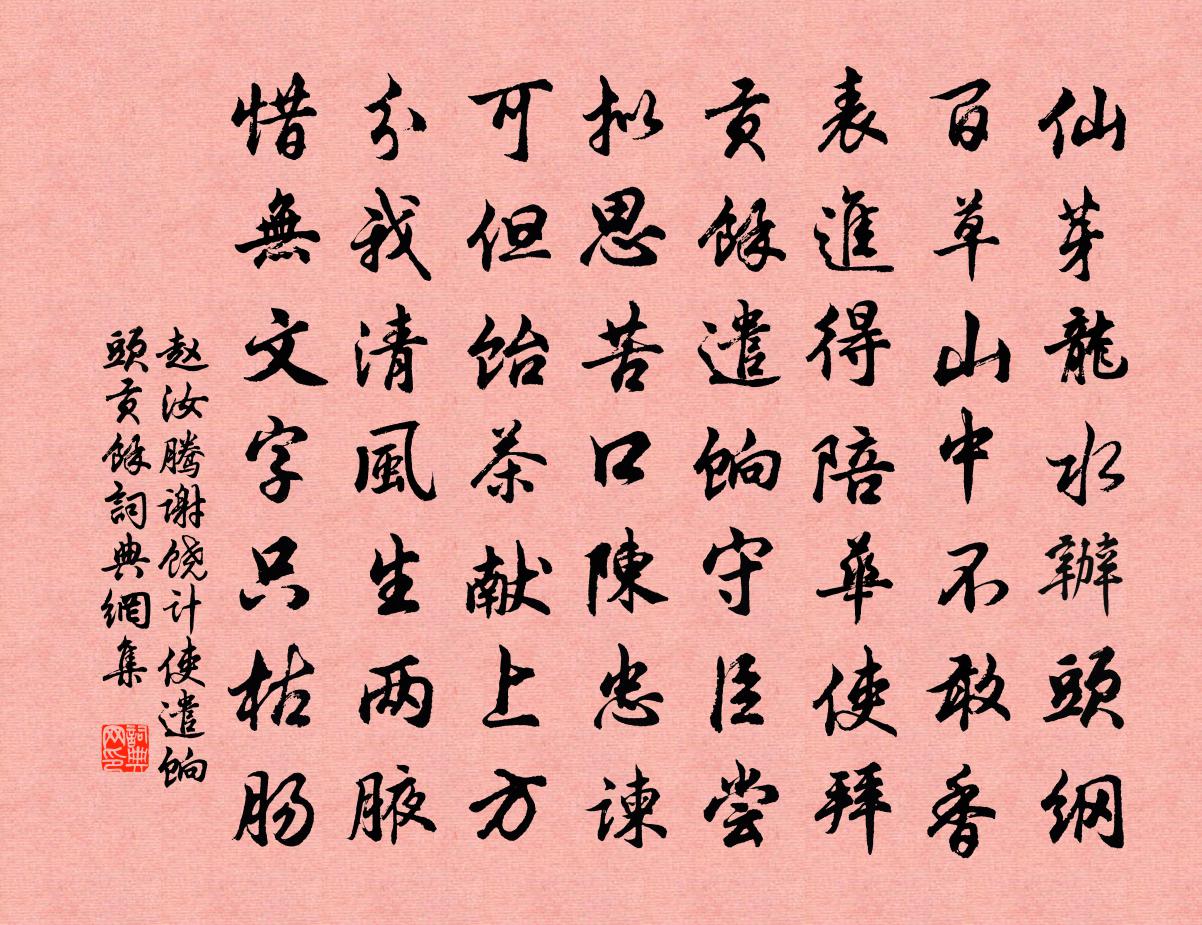 仙芽龍水辦頭綱
百草山中不敢香
表進得陪華使拜
貢餘遣餉守臣嘗
拟思苦口陳忠諫
可但飴茶献上方
分我清風生两腋
惜無文字只枯肠
赵汝腾谢饶计使遣餉
頭貢餘詞典網集
詞典网印